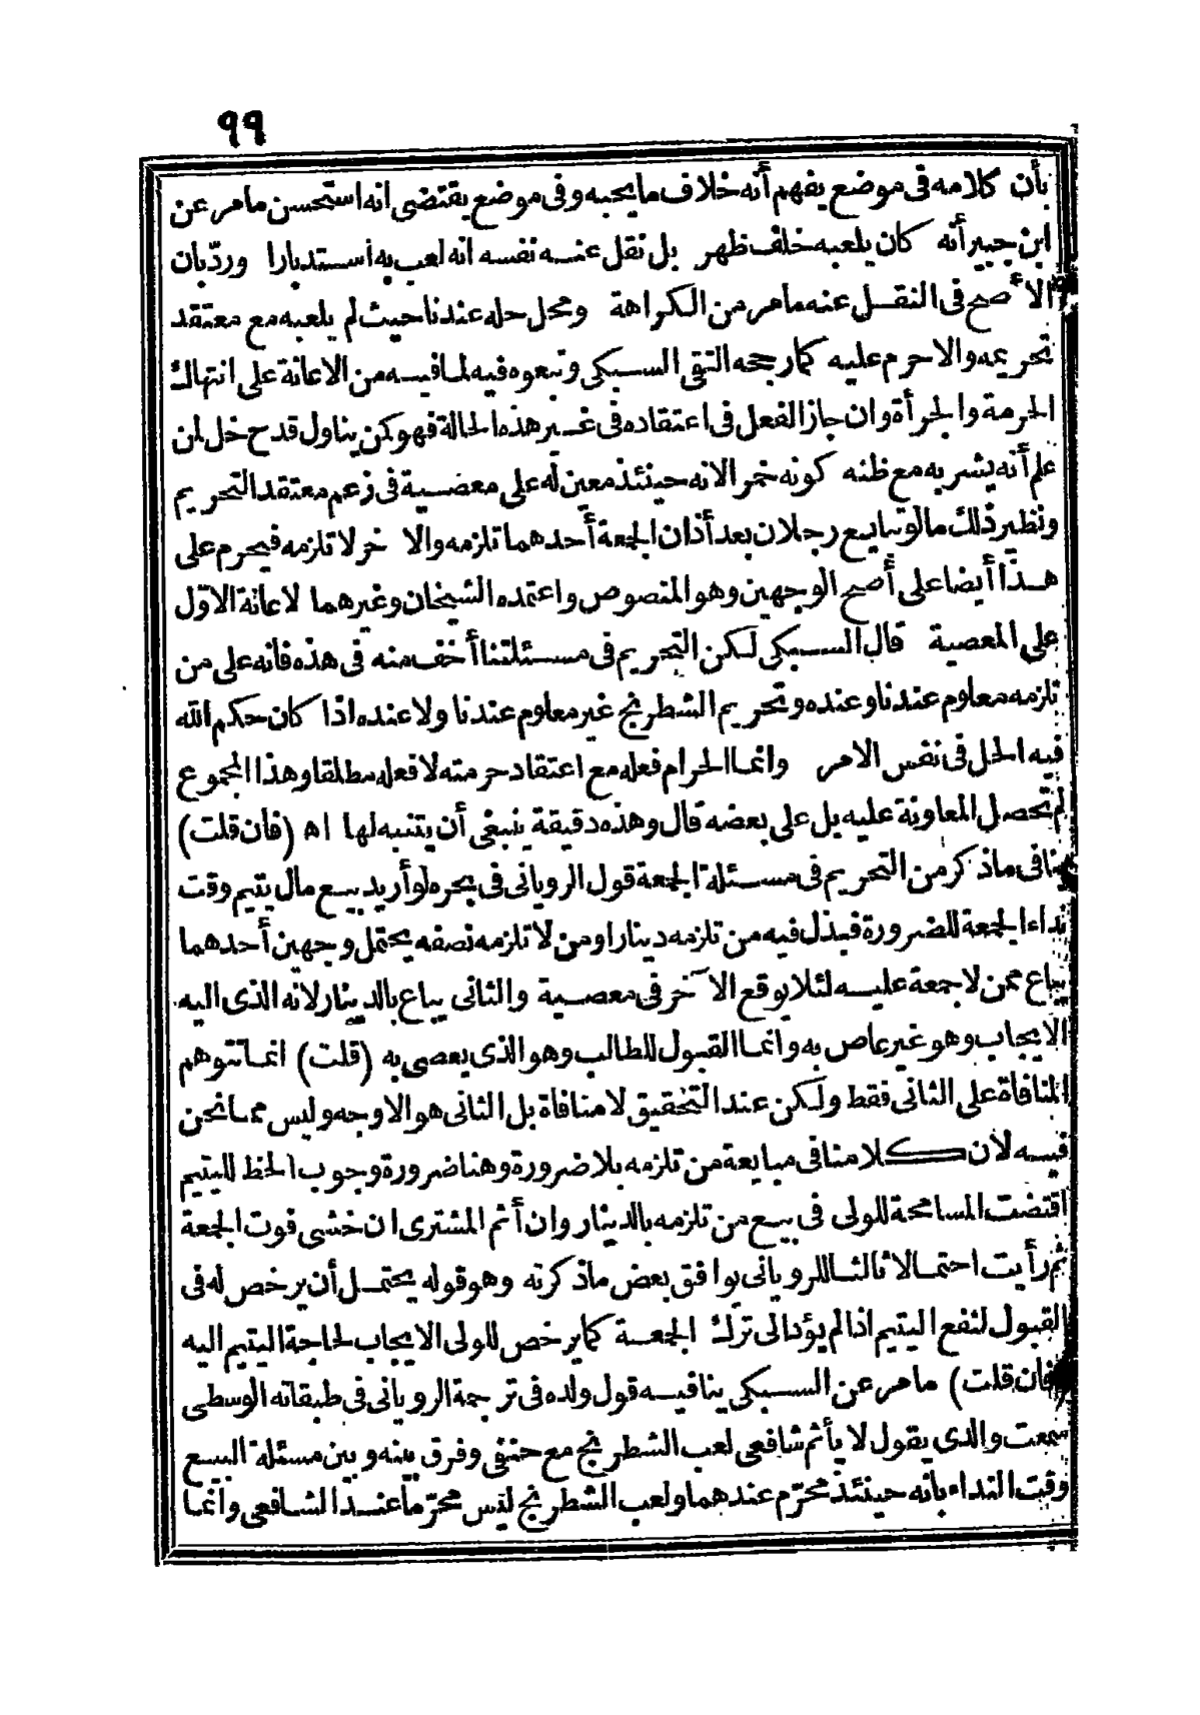 ٩٩
بأن كلامه فى موضع يفهم أنه خلاف ما يحبه وفى موضع يقتضى انه استحسن ما مر عن
ابن جبير أنه كان يلعبه خلف ظهر بل نقل عنه نفسه انه لعب به استدبارا وردّ بان
الاصح فى النقل عنه ما مر من الكراهة ومحل حله عندنا حيث لم يلعبه مع معتقد
تحريمه والا حرم عليه كما رجحه التقى السبكى وتبعوه فيه لما فيه من الاعانة على انتهاك
الحرمة والجرأة وان جاز الفعل فى اعتقاده فى غير هذه الحالة فهو كمن يناول قدح خل لمن
علم أنه يشربه مع ظنه كونه خمرا لانه حينئذ معين له على معصية فى زعم معتقد التحريم
ونظير ذلك ما لو تبايع رجلان بعد أذان الجمعة أحدهما تلزمه والا خر لا تلزمه فيحرم على
هذا أيضا على أصح الوجهين وهو المنصوص واعتمده الشيخان وغيرهما لاعانة الاوّل
على المعصية قال السبكى لكن التحريم فى مسئلتنا أخف منه فى هذه فانه على من
تلزمه معلوم عندنا وعنده وتحريم الشطرنج غير معلوم عندنا ولا عنده اذا كان حكم الله
فيه الحل فى نفس الامر وانما الحرام فعله مع اعتقاد حرمته لا فعله مطلقا وهذا المجموع
لم تحصل المعاونة عليه بل على بعضه قال وهذه دقيقة ينبغى أن يتنبه لها اه (فان قلت)
ينافى ما ذكر من التحريم فى مسئلة الجمعة قول الرويانى فى بحره لو أريد بيع مال يتيم وقت
نداء الجمعة للضرورة فبذل فيه من تلزمه دينارا ومن لا تلزمه نصفه يحتمل وجهين أحدهما
يباع ممن لا جمعة عليه لئلا يوقع الآخر فى معصية والثانى يباع بالدينار لانه الذى اليه
الايجاب وهو غير عاص به وانما القبول للطالب وهو الذى يعصى به (قلت) انما تتوهم
المنافاة على الثانى فقط ولكن عند التحقيق لا منافاة بل الثانى هو الاوجه وليس مما نحن
فيه لان كلامنا فى مبايعة من تلزمه بلا ضرورة وهنا ضرورة وجوب الحظ لليتيم
اقتضت المسامحة للولى فى بيع من تلزمه بالدينار وان أثم المشترى ان خشى فوت الجمعة
ثم رأيت احتمالا ثالثا للرويانى يوافق بعض ما ذكرته وهو قوله يحتمل أن يرخص له فى
القبول لنفع اليتيم اذا لم يؤد الى ترك الجمعة كما يرخص للولى الايجاب لحاجة اليتيم اليه
(فان قلت) ما مر عن السبكى ينافيه قول ولده فى ترجمة الرويانى فى طبقاته الوسطى
سمعت والدى يقول لا يأثم شافعى لعب الشطرنج مع حنفى وفرق بينه وبين مسئلة البيع
وقت النداء بانه حينئذ محرّم عندهما ولعب الشطرنج ليس محرّما عند الشافعى وانما